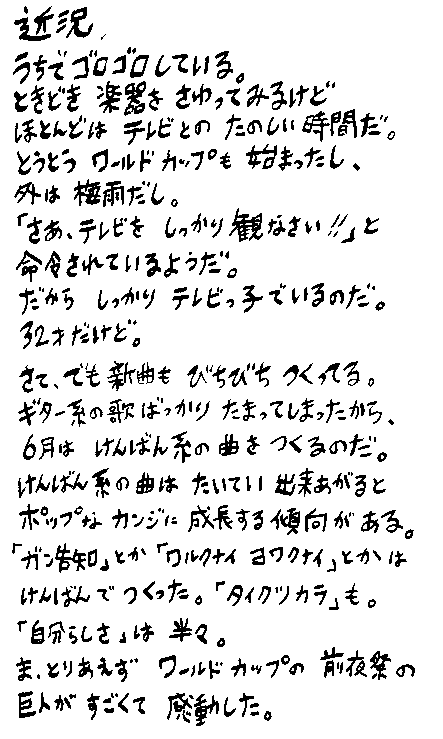 近況、
うちでゴロゴロしている。
ときどき 楽器を さわってみるけど
ほとんどは テレビとの たのしい時間だ。
とうとう ワールドカップも 始まったし、
外は 梅雨だし。
「さあ、テレビを しっかり観なさい!!」と
命令されているようだ。
だから しっかり テレビっ子でいるのだ。
32才だけど。
さて、でも新曲も びちびち つくってる。
ギター系の歌ばっかり たまってしまったから、
6月は けんばん系の曲を つくるのだ。
けんばん系の曲は たいてい 出来あがると
ポップな カンジに 成長する傾向がある。
「ガン告知」とか「ワルクナイ ヨワクナイ」とかは
けんばんで つくった。「タイクツカラ」も。
「自分らしさ」は 半々。
ま、とりあえず ワールドカップの 前夜祭の
巨人が すごくて 感動した。